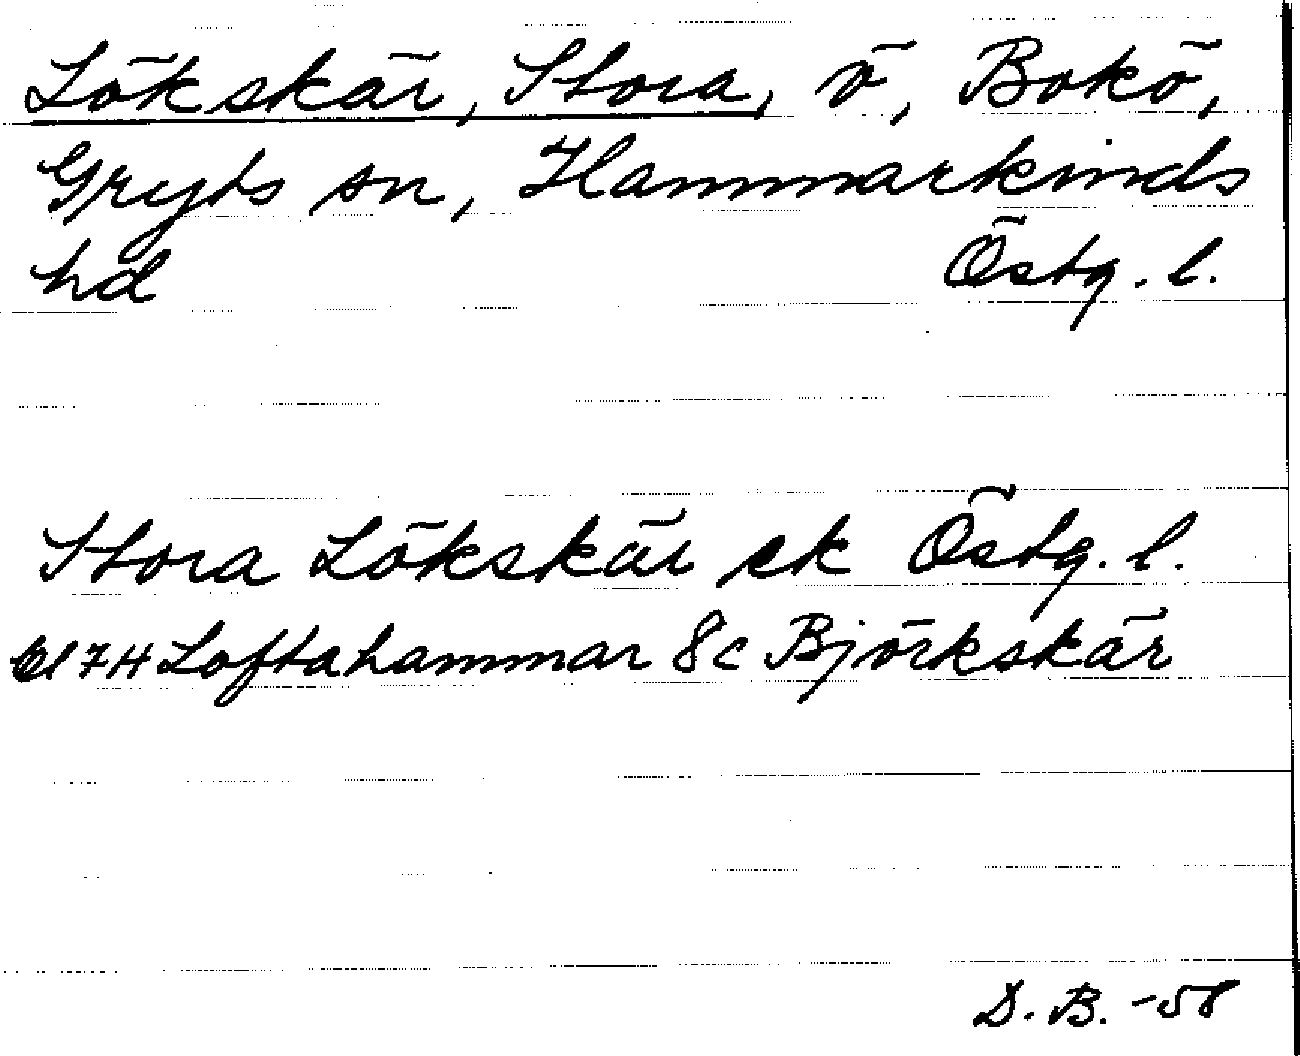 Lökskär, Stora, ö, Bokö,
Gryts sn, Hammarkinds
hd Östg. l.
Stora Lökskär ek Östg. l.
bl 7H Loftahammar 8c Björkskär
D. B. -58